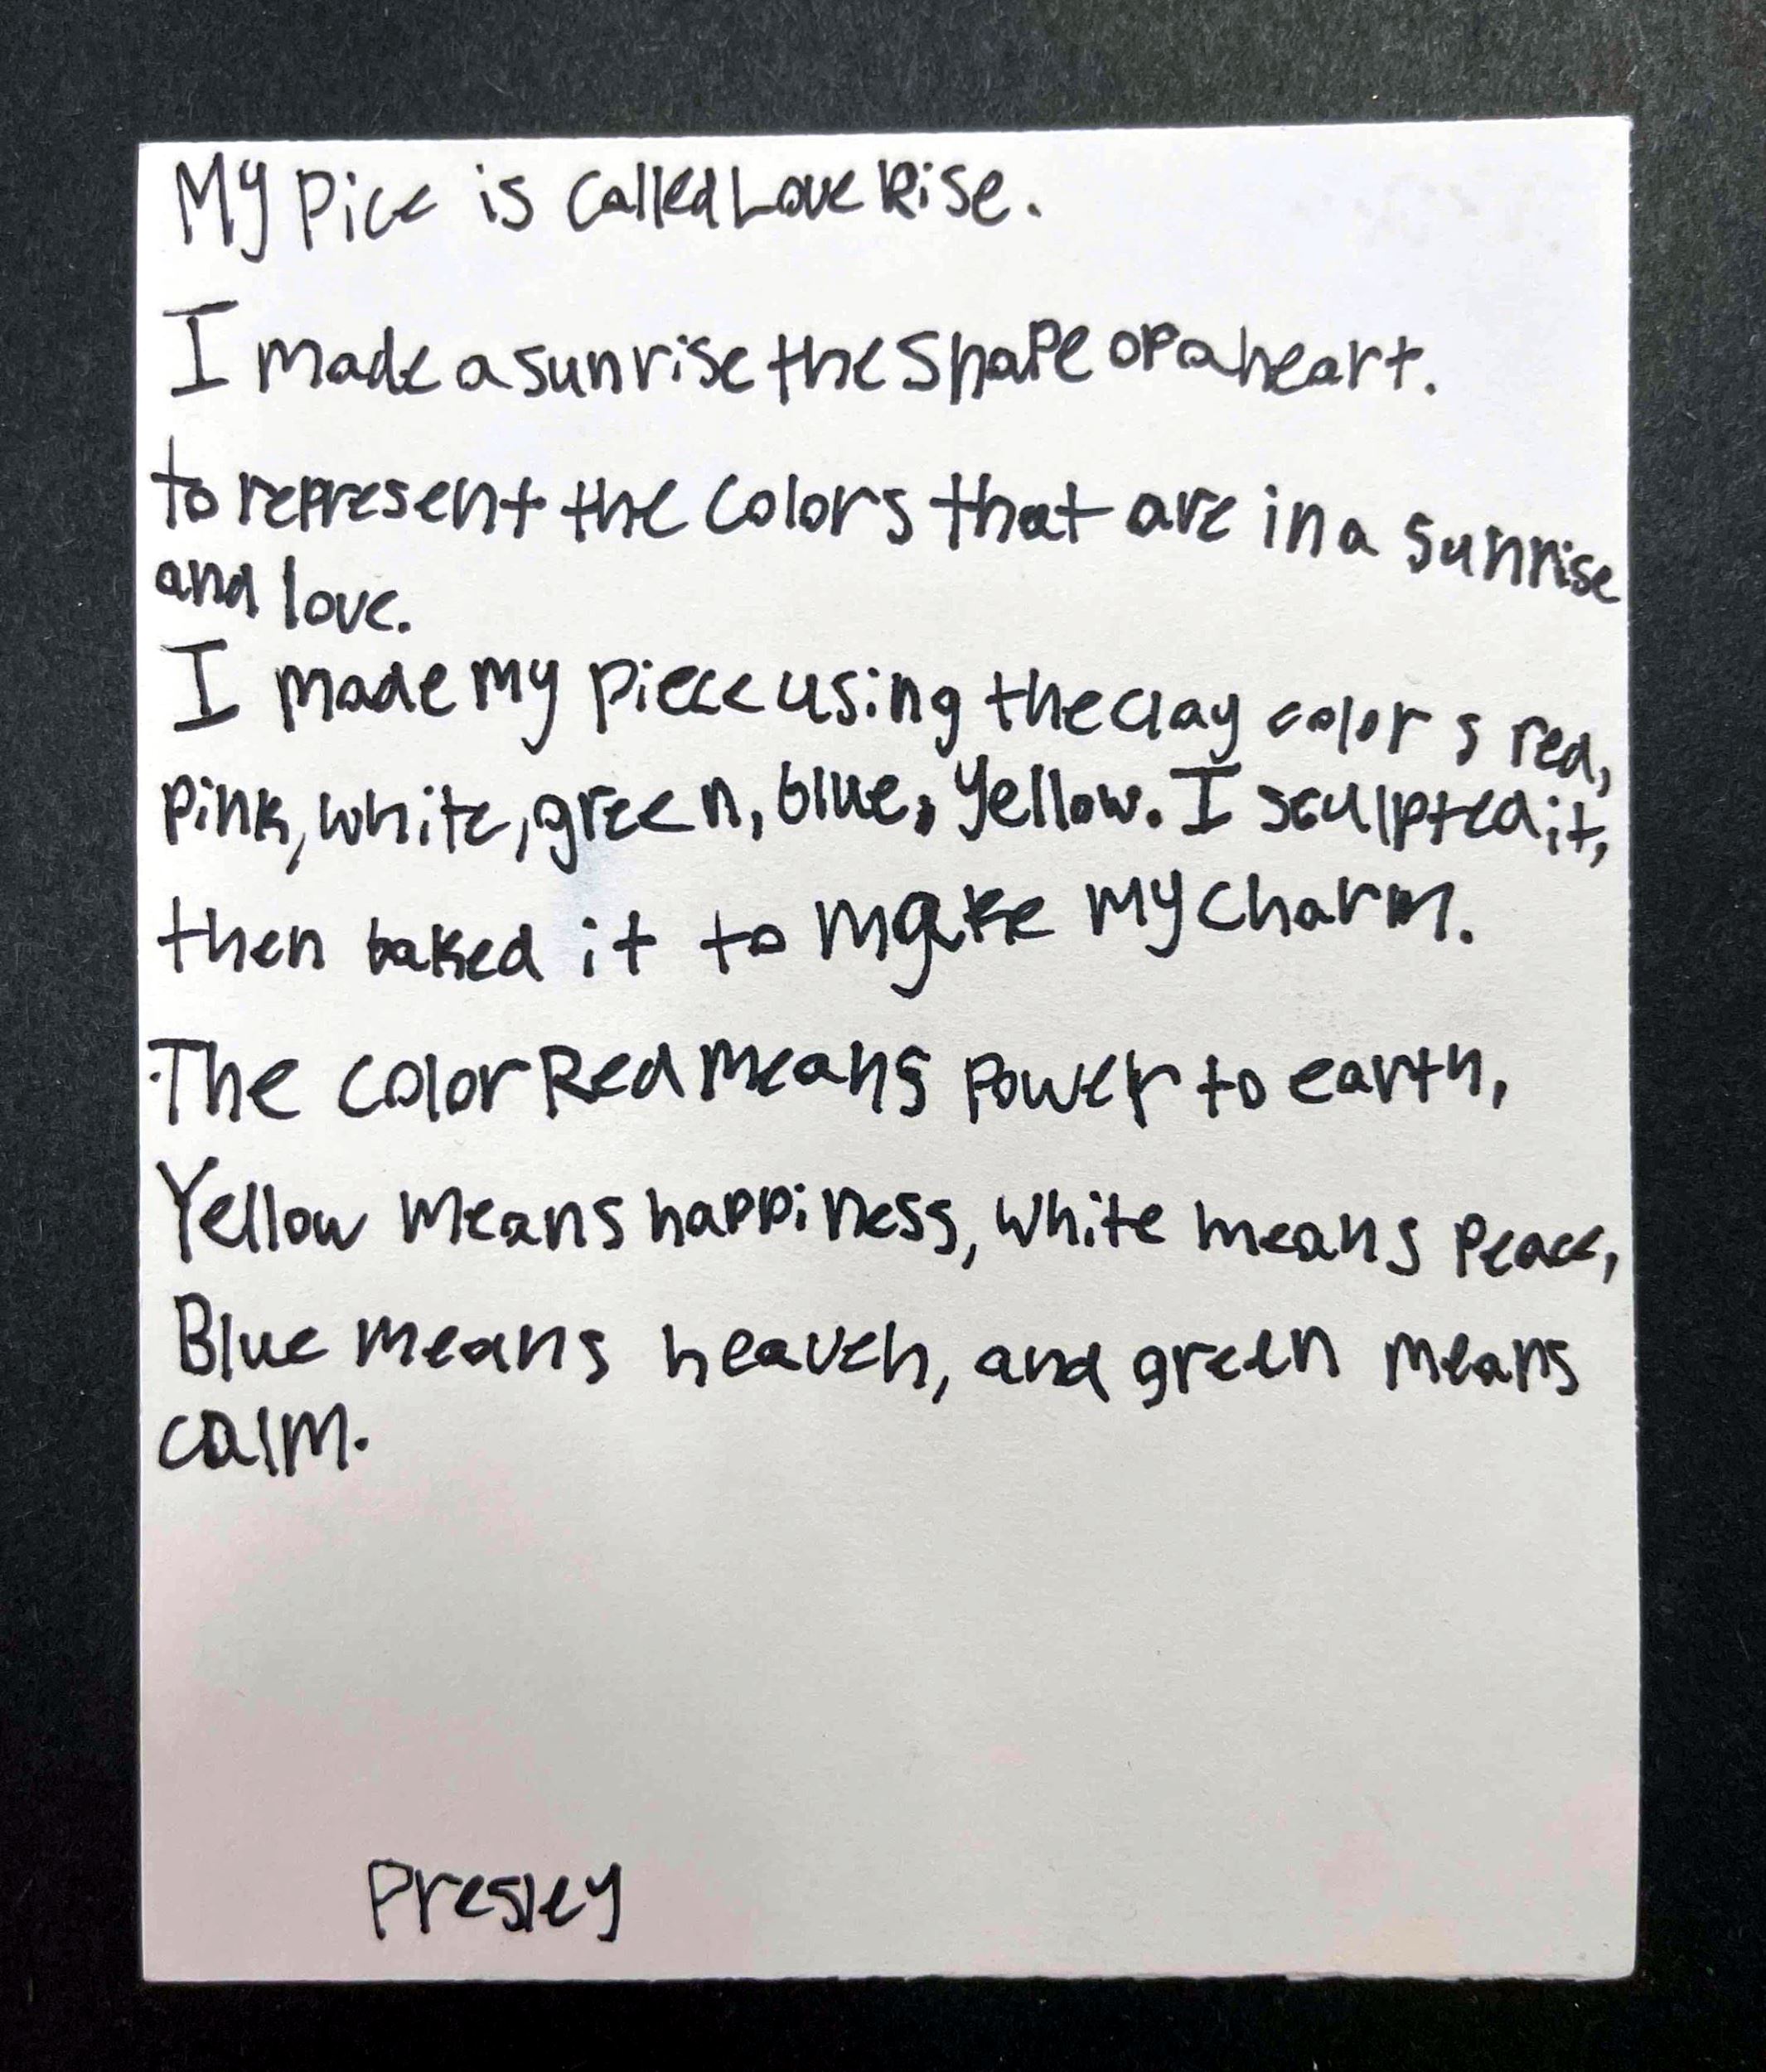 My Pice is called Love Rise.
I made a sunrise the shape of a heart.
to represent the colors that are in a sunrise
and love.
I made my piece using the clay colors red,
pink, white, green, blue, yellow. I sculpted it,
then baked it to make my charm.
The color Red means power to earth,
Yellow means happiness, white means peace,
Blue means heaven, and green means
calm.
Presley